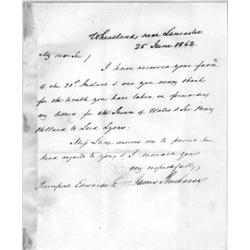 Wheatland, near Lancaster
25 June 1862.
My dear Sir/
I have received your favor
of the 21st Instant & owe you many thanks
for the trouble you have taken in forwarding
my letters for the Prince of Wales & Sir Henry
Holland to Lord Lyons.
Miss Lane desires me to present her
kind regards to you & I remain yours
very respectfully,
James Buchanan